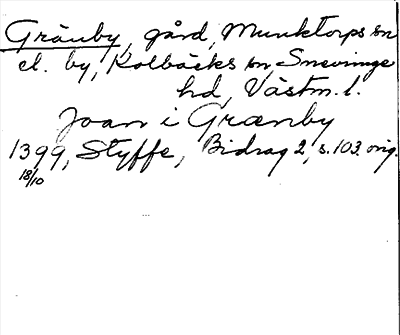 Gränby, gård, Munktorps sn
el. by, Kolbäcks sn, Snevringe
hd, Västm. l.
Joan i Grænby
1399, Styffe, Bidrag 2, s. 103. orig.
18/10